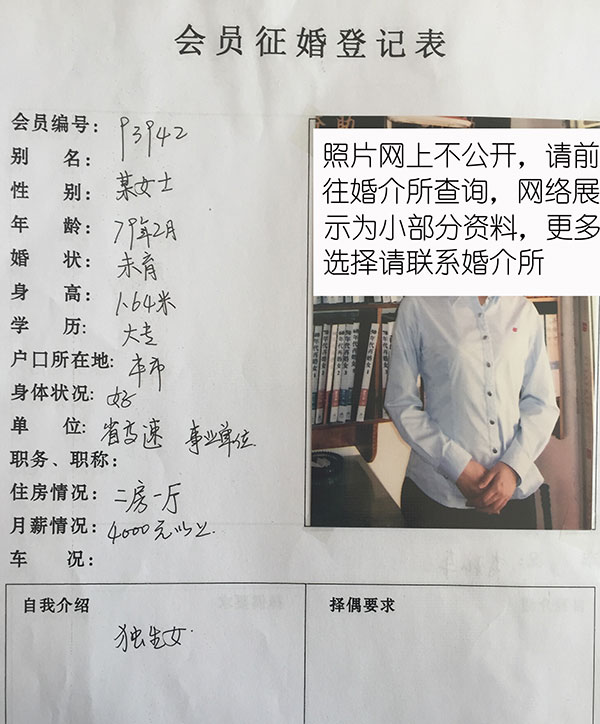 会员征婚登记表
会员编号: 93942
别 名:
性 别: 某女士
年 龄: 79年2月
婚 状: 未育
身 高: 1.64米
学 历: 大专
户口所在地: 本市
身体状况: 好
单 位: 省高速 事业单位
职务、职称:
住房情况: 二房一厅
月薪情况: 4000元以上
车 况:
照片网上不公开，请前
往婚介所查询，网络展
示为小部分资料，更多
选择请联系婚介所
自我介绍
独生女
择偶要求